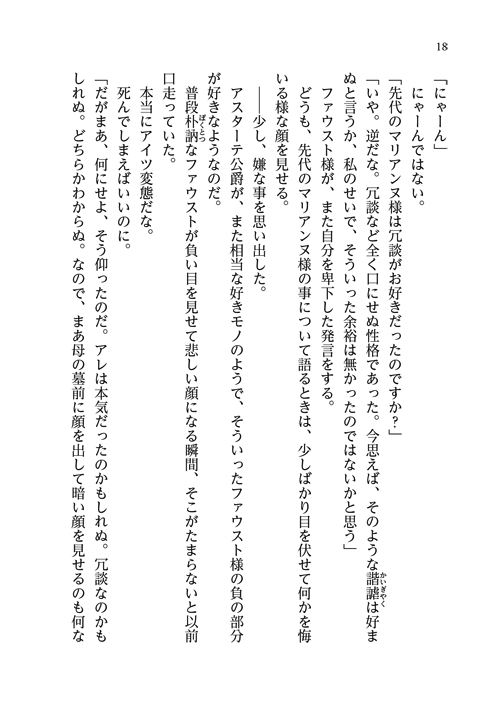 18
「にゃーん」
にゃーんではない。
「先代のマリアンヌ様は冗談がお好きだったのですか？」
「いや。逆だな。冗談など全く口にせぬ性格であった。今思えば、そのような諧謔は好ま
かいぎゃく
ぬと言うか、私のせいで、そういった余裕は無かったのではないかと思う」
ファウスト様が、また自分を卑下した発言をする。
どうも、先代のマリアンヌ様の事について語るときは、少しばかり目を伏せて何かを悔
いる様な顔を見せる。
――少し、嫌な事を思い出した。
アスターテ公爵が、また相当な好きモノのようで、そういったファウスト様の負の部分
が好きなようなのだ。
普段朴訥なファウストが負い目を見せて悲しい顔になる瞬間、そこがたまらないと以前
ぼくとつ
口走っていた。
本当にアイツ変態だな。
死んでしまえばいいのに。
「だがまあ、何にせよ、そう仰ったのだ。アレは本気だったのかもしれぬ。冗談なのかも
しれぬ。どちらかわからぬ。なので、まあ母の墓前に顔を出して暗い顔を見せるのも何な